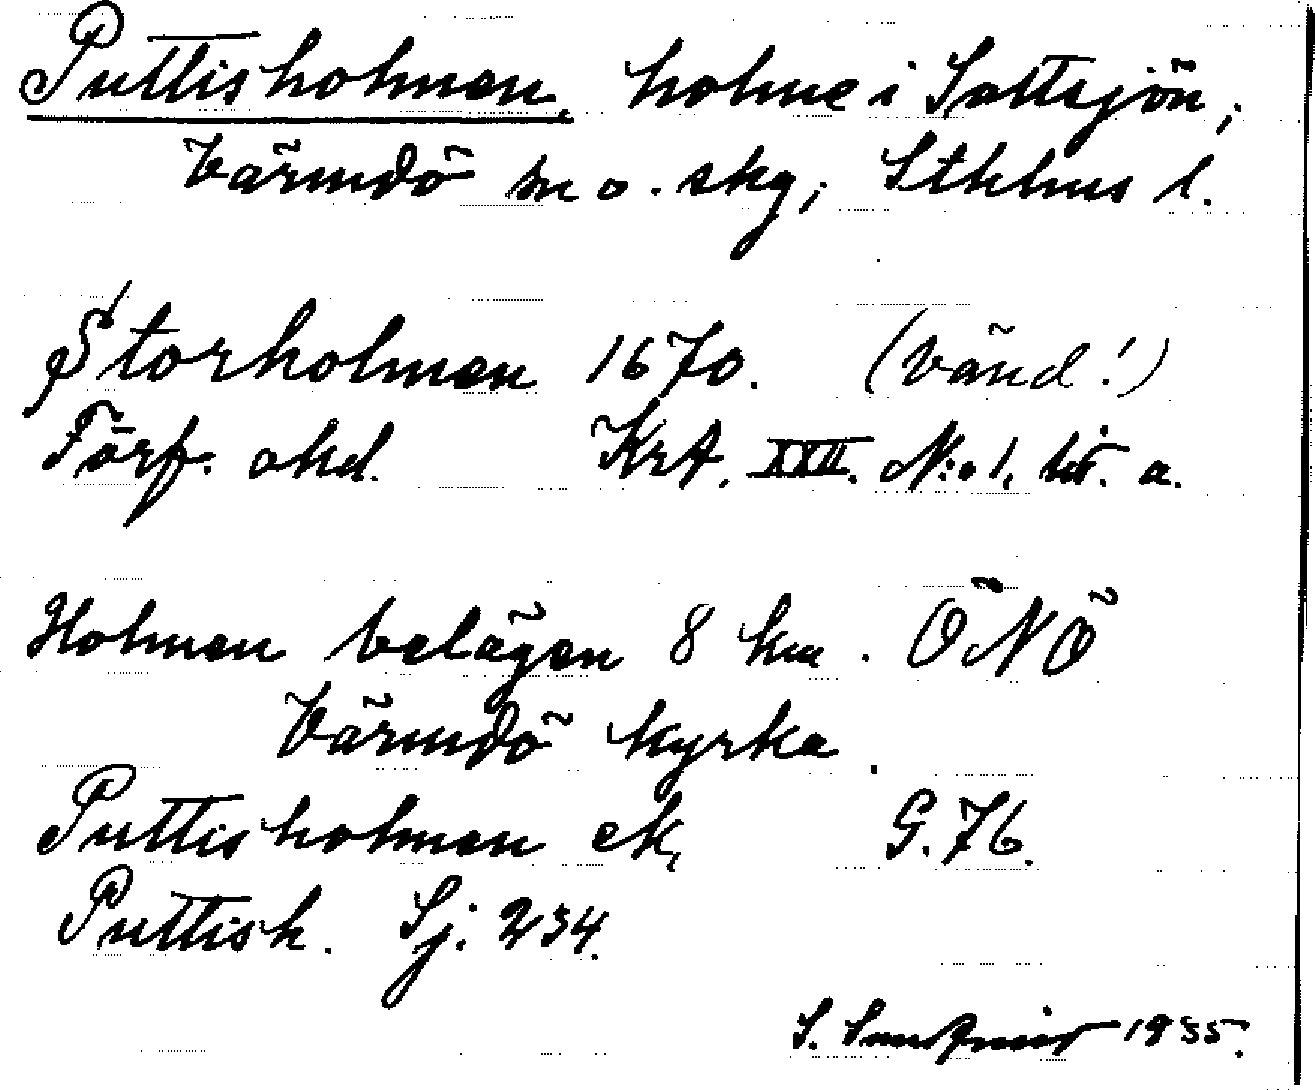 Puttisholmen, holme i Saltsjön,
Värmdö sn o. skg, Sthlms l.
Storholmen 1670. (vänd!)
Förf. okd. Krt. XXII. N:o 1, lit. a.
Holmen belägen 8 km. ÖNÖ
Värmdö kyrka.
Puttisholmen ek, G.76.
Puttish. Sj. 234.
S. Sundqvist 1935.